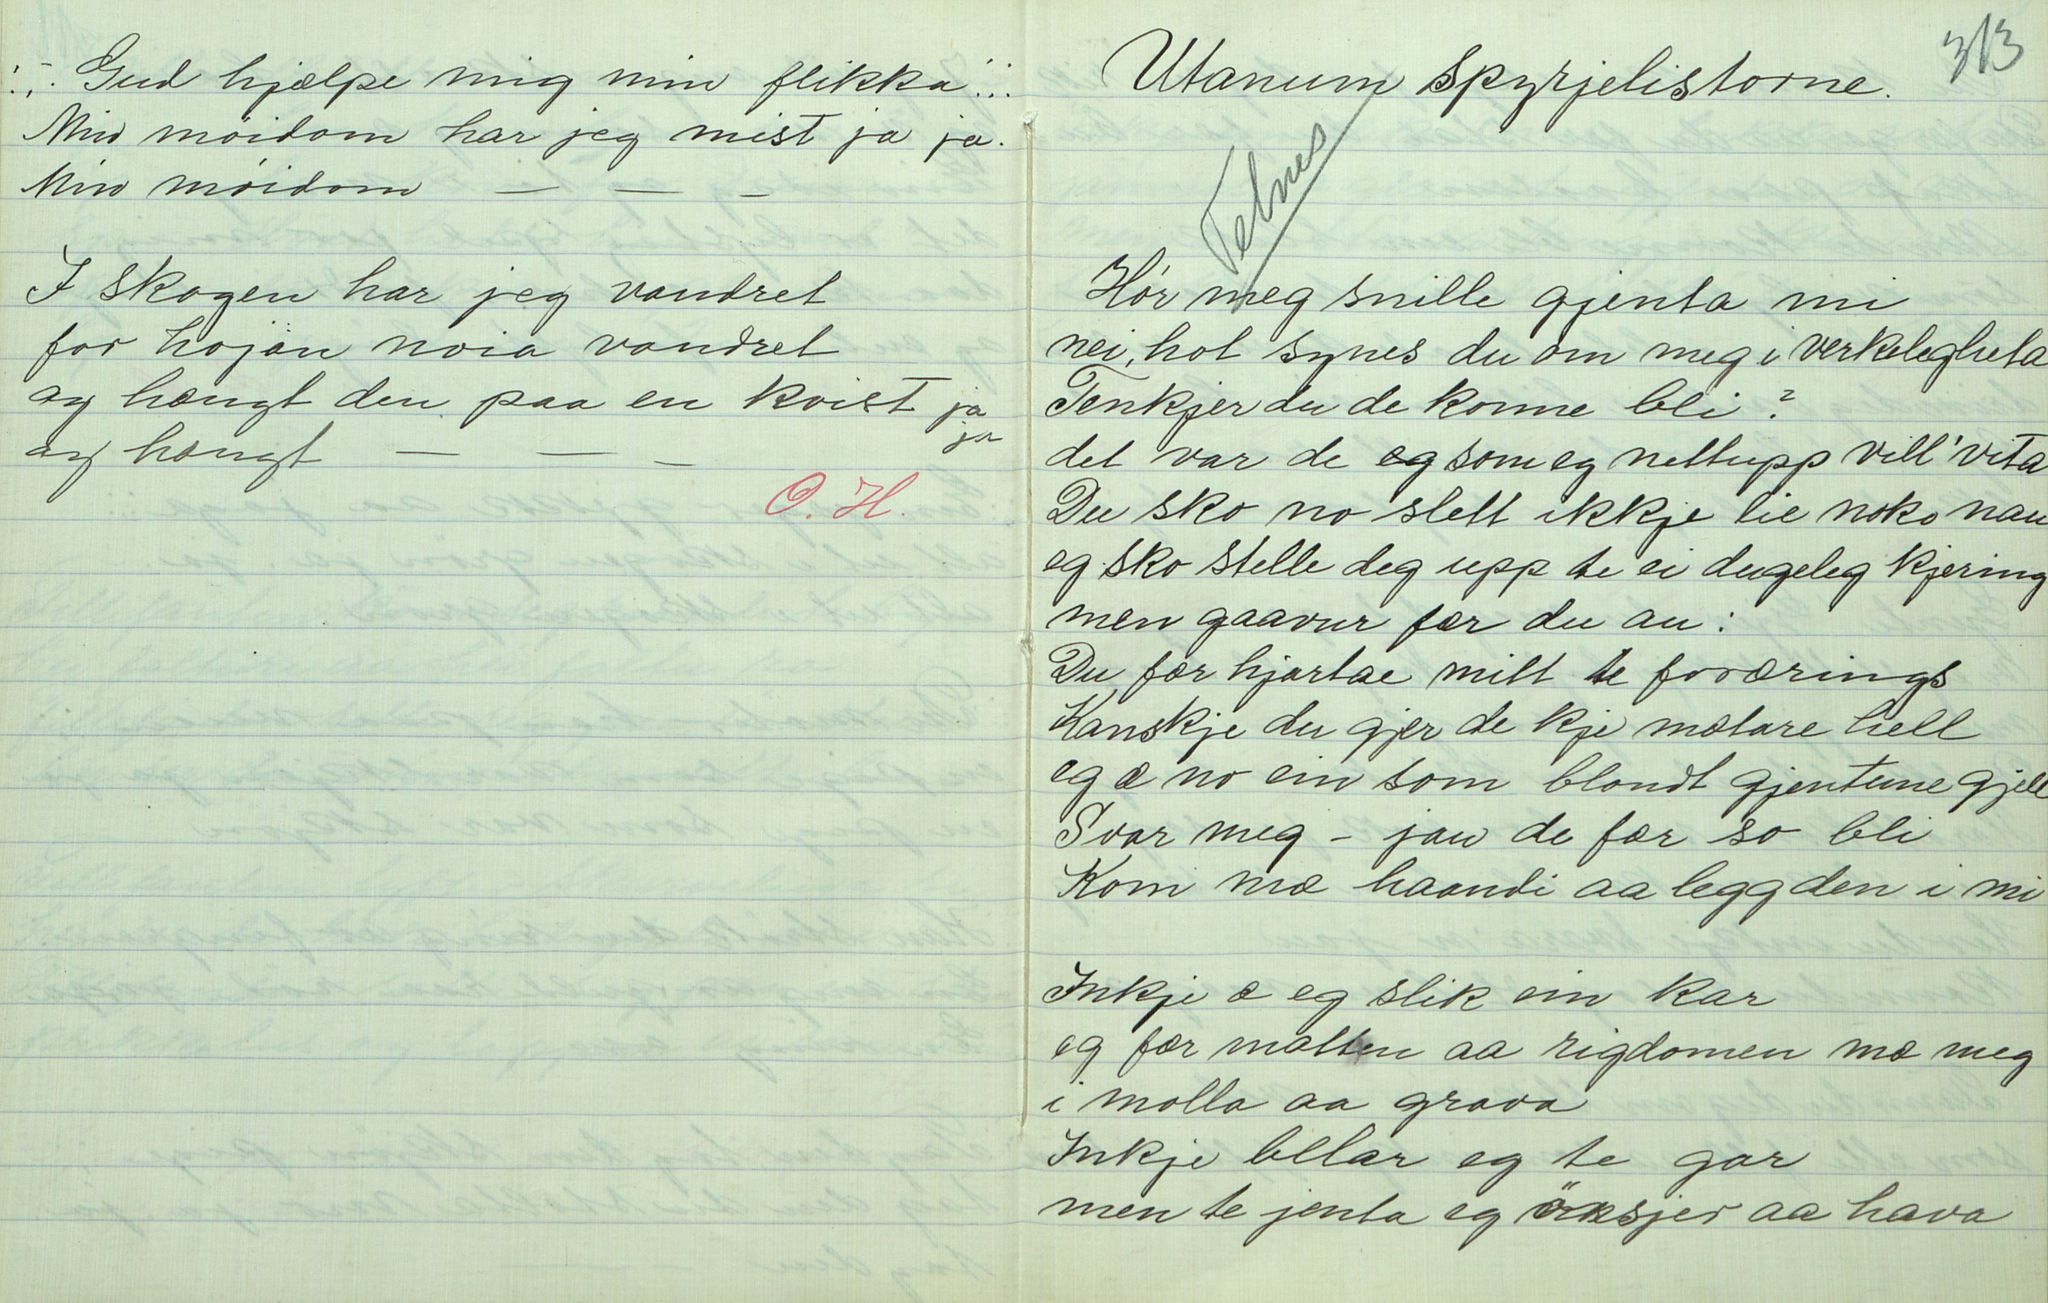 :,: Gud hjælpe mig min flikka :,:
Min möidom har jeg mist ja ja.
Min möidom — — —
I skogen har jeg vandret
for hojan noia vandret
og hængt den paa en kvist ja
ja
og hængt — — —
O. H.
313
Utanum spyrjelistorne.
Hör meg snille gjenta mi
nei, hot synes du om meg i verkelegheta
Tenkjer du de konne bli?
det var de eg som eg nettupp vill' vita
Du sko no slett ikkje lie noko nau
eg sko stelle deg upp te ei dugeleg kjering
men gaavur fær du au:
Du fær hjartae mitt te foræring
Kanskje du gjer de kje mætare hell
eg æ no ein som blandt gjentune gjell
Svar meg – jau de fær so bli
Kom mæ haandi aa legg den i mi
Inkje æ eg slik ein kar
eg fær matten aa rigdomen mæ meg
i molla aa grava
Inkje bélar eg te gar
men te jenta eg önsjer aa hava